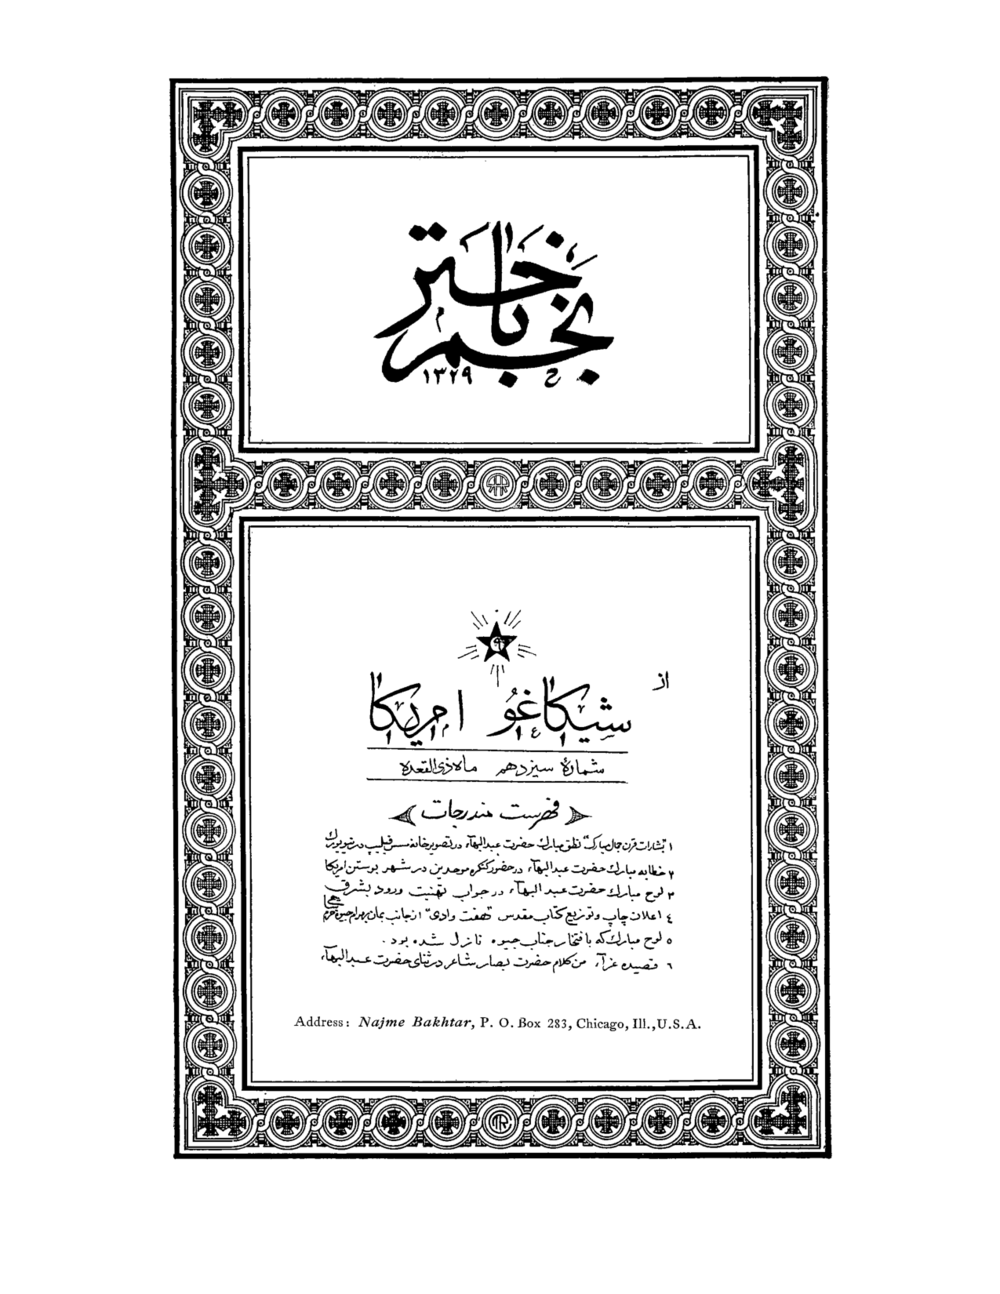 نجم باختر
١٣٢٩
٩
از
شیکاغو امریکا
شمارهٔ سیزدهم ماه ذی‌القعده
فهرست مندرجات
١ بشارات قرن جمال مبارک" نطق مبارک حضرت عبدالبهآء در تصویرخانه مسس فیلیپ در نیویورک
٢ خطابه مبارک حضرت عبدالبهآء در حضور کنگره موحدین در شهر بوستن امریکا
٣ لوح مبارک حضرت عبدالبهآء در جواب تهنیت ورود بشرق
٤ اعلان چاپ و توزیع کتاب مقدس "هفت وادی" از جانب بمان بهرام جیوه
٥ لوح مبارک که بافتخار جناب جیوه نازل شده بود .
٦ قصیده غرآء من کلام حضرت بصار شاعر در ثنای حضرت عبدالبهآء
Address: Najme Bakhtar, P. O. Box 283, Chicago, Ill.,U.S.A.